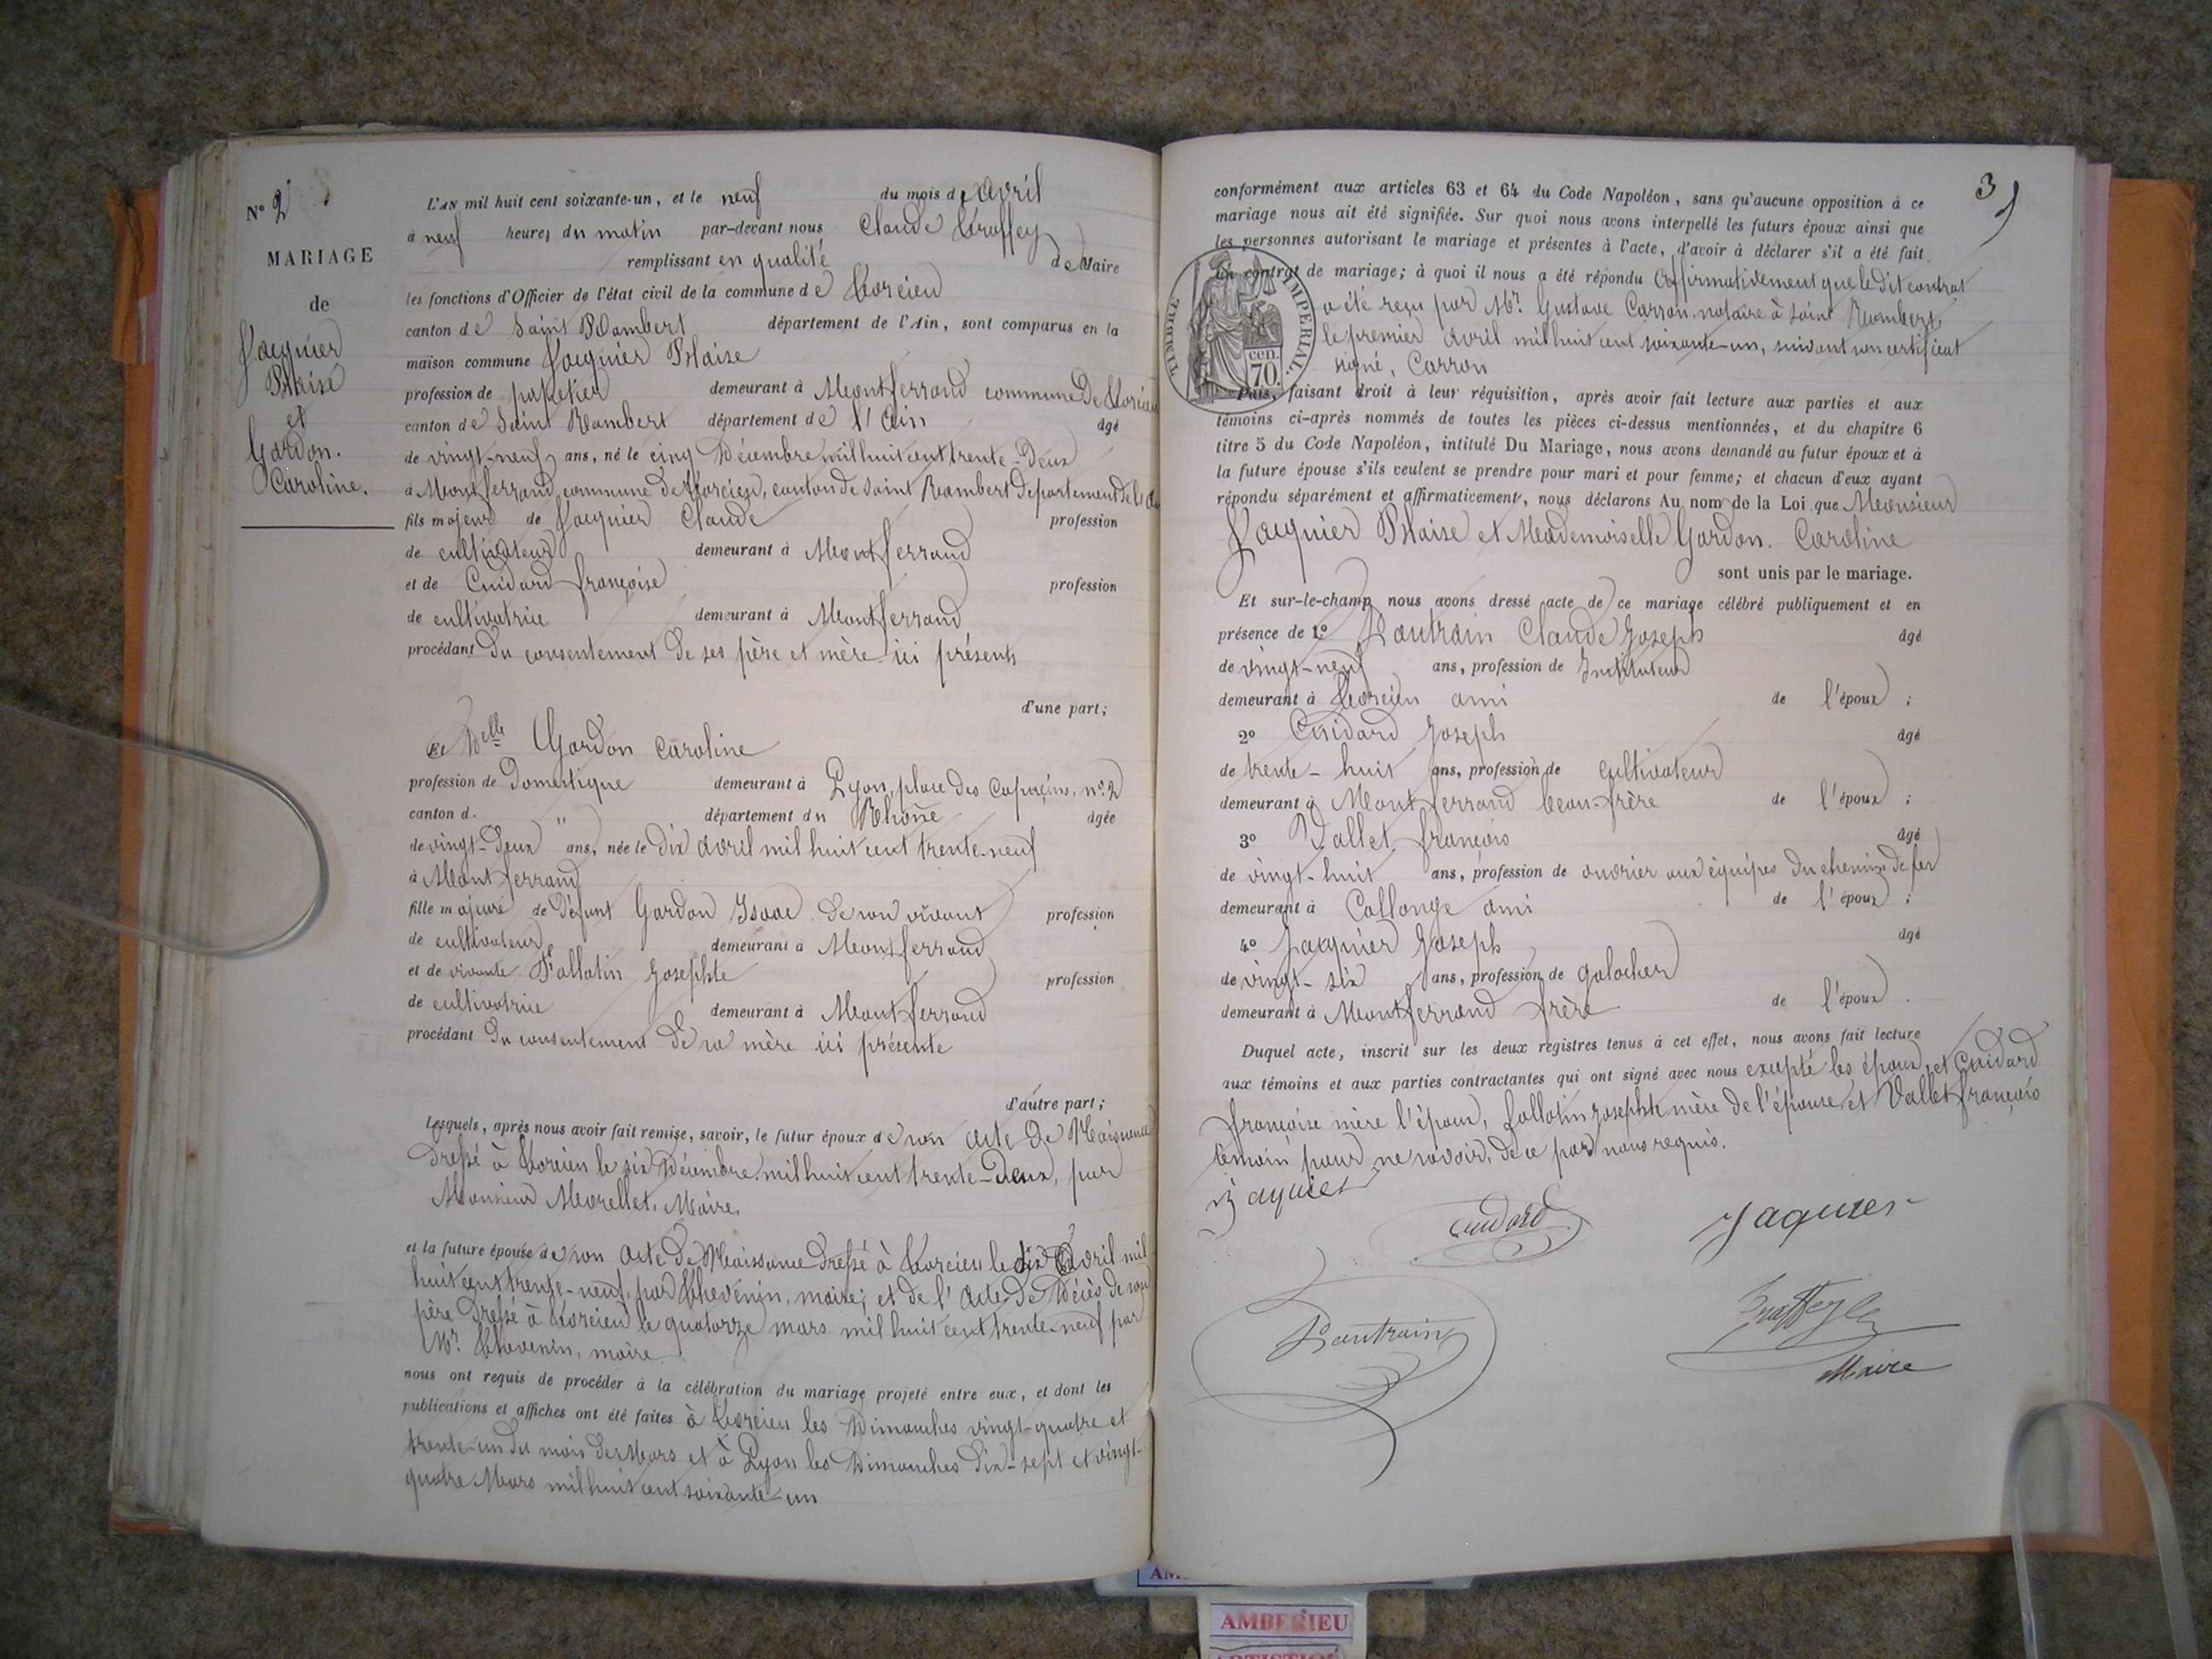 N° 2
MARIAGE
de
Jacquier
Blaise
et
Gardon.
Caroline.
L'AN mil huit cent soixante-un, et le neuf du mois de avril
à neuf heures du matin par-devant nous Claude Truffey
remplissant en qualité de Maire
les fonctions d'Officier de l'état civil de la commune de Torcieu
canton de Saint Rambert département de l'Ain, sont comparus en la
maison commune Jacquier Blaise
profession de papetier demeurant à Montferrand commune de Torcieu
canton de Saint Rambert département de l'Ain âgé
de vingt-neuf ans, né le cinq Décembre mil huit cent trente-Deux
à Montferrand commune de Torcieu, canton de Saint Rambert département de l'Ain
fils majeur de Jacquier Claude profession
de cultivateur demeurant à Montferrand
et de Cuidard françoise profession
de cultivatrice demeurant à Montferrand
procédant du consentement de ses père et mère ici présents
d'une part;
Et Delle Gardon Caroline
profession de Domestique demeurant à Lyon, place des Capucins, n° 2
canton d. département du Rhône âgée
de vingt-Deux ans, née le Dix avril mil huit cent trente-neuf
à Montferrand
fille majeure de Défunt Gardon Isaac de son vivant profession
de cultivateur demeurant à Montferrand
et de vivante Follatin Josephte profession
de cultivatrice demeurant à Montferrand
procédant du consentement de sa mère ici présente
d'autre part;
Lesquels, après nous avoir fait remise, savoir, le futur époux de son acte de Naissance
Dressé à Torcieu le six Décembre mil huit cent trente-Deux, par
Monsieur Morellet, Maire.
et la future épouse de son acte De Naissance Dressé à Torcieu le dix Avril mil
huit cent trente-neuf, par Thevenin, maire; et de l'acte de Décès de son
père Dressé à Torcieu le quatorze mars mil huit cent trente-neuf par
Mr. Thevenin, maire.
nous ont requis de procéder à la célébration du mariage projeté entre eux, et dont les
publications et affiches ont été faites à Torcieu les Dimanches vingt-quatre et
trente-un du mois de Mars et à Lyon les Dimanches Dix-sept et vingt-
quatre Mars mil huit cent soixante-un
3
conformément aux articles 63 et 64 du Code Napoléon, sans qu'aucune opposition à ce
mariage nous ait été signifiée. Sur quoi nous avons interpellé les futurs époux ainsi que
les personnes autorisant le mariage et présentes à l'acte, d'avoir à déclarer s'il a été fait
un contrat de mariage; à quoi il nous a été répondu affirmativement que le dit contrat
a été reçu par Mr. Gustave Carron notaire à saint Rambert,
le premier avril mil huit cent soixante-un, suivant son certificat
signé, Carron
TIMBRE IMPERIAL.
cen.
70.
Puis, faisant droit à leur réquisition, après avoir fait lecture aux parties et aux
témoins ci-après nommés de toutes les pièces ci-dessus mentionnées, et du chapitre 6
titre 5 du Code Napoléon, intitulé Du Mariage, nous avons demandé au futur époux et à
la future épouse s'ils veulent se prendre pour mari et pour femme; et chacun d'eux ayant
répondu séparément et affirmativement, nous déclarons Au nom de la Loi que Monsieur
Jacquier Blaise et Mademoiselle Gardon. Caroline
sont unis par le mariage.
Et sur-le-champ nous avons dressé acte de ce mariage célébré publiquement et en
présence de 1° Lautrain Claude Joseph âgé
de vingt-neuf ans, profession de Instituteur
demeurant à Torcieu ami de l'époux ;
2° Cuidard Joseph âgé
de trente-huit ans, profession de cultivateur
demeurant à Montferrand beau-frère de l'époux ;
3° Vallet françois âgé
de vingt-huit ans, profession de ouvrier aux équipes du chemin de fer
demeurant à Collonge ami de l'époux ;
4° Jacquier Joseph âgé
de vingt-six ans, profession de galocher
demeurant à Montferrand frère de l'époux.
Duquel acte, inscrit sur les deux registres tenus à cet effet, nous avons fait lecture
aux témoins et aux parties contractantes qui ont signé avec nous excepté les époux, et Cuidard
françoise mère l'époux, follatin josephte mère de l'épouse et Vallet françois
témoin pour ne savoir, de ce par nous requis.
Jaquier
Cuidard
Jaquier
Lautrain
Truffey Cl
Maire
AMBERIEU